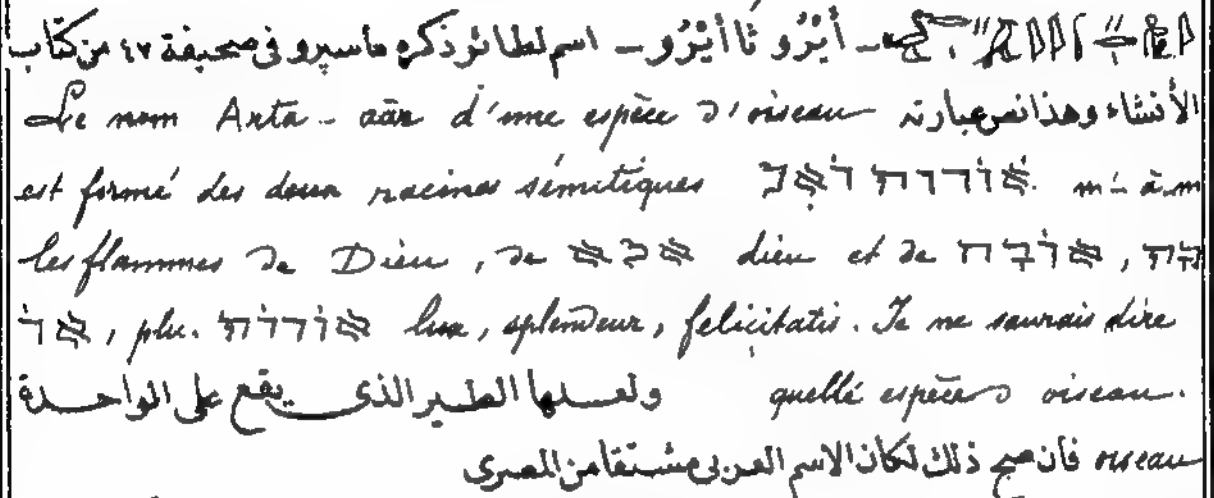 ـ أَيْرُو ثَا أَيْرُو ـ اسم لطائر ذكره ماسپرو فى صحيفة ٤٧ من كتاب
الأنشاء وهذا نص عبارته Le nom Arta-aär d'une espèce d'oiseau
est formé des deux racines sémitiques m-à-m
les flammes de Dieu, de dieu et de
, plu. lux, splendeur, felicitatis. Je ne saurais dire
quelle espèce d oiseau. ولعلها الطير الذى يقع على الواحدة
oiseau فان صح ذلك لكان الاسم العربى مشتقا من المصرى